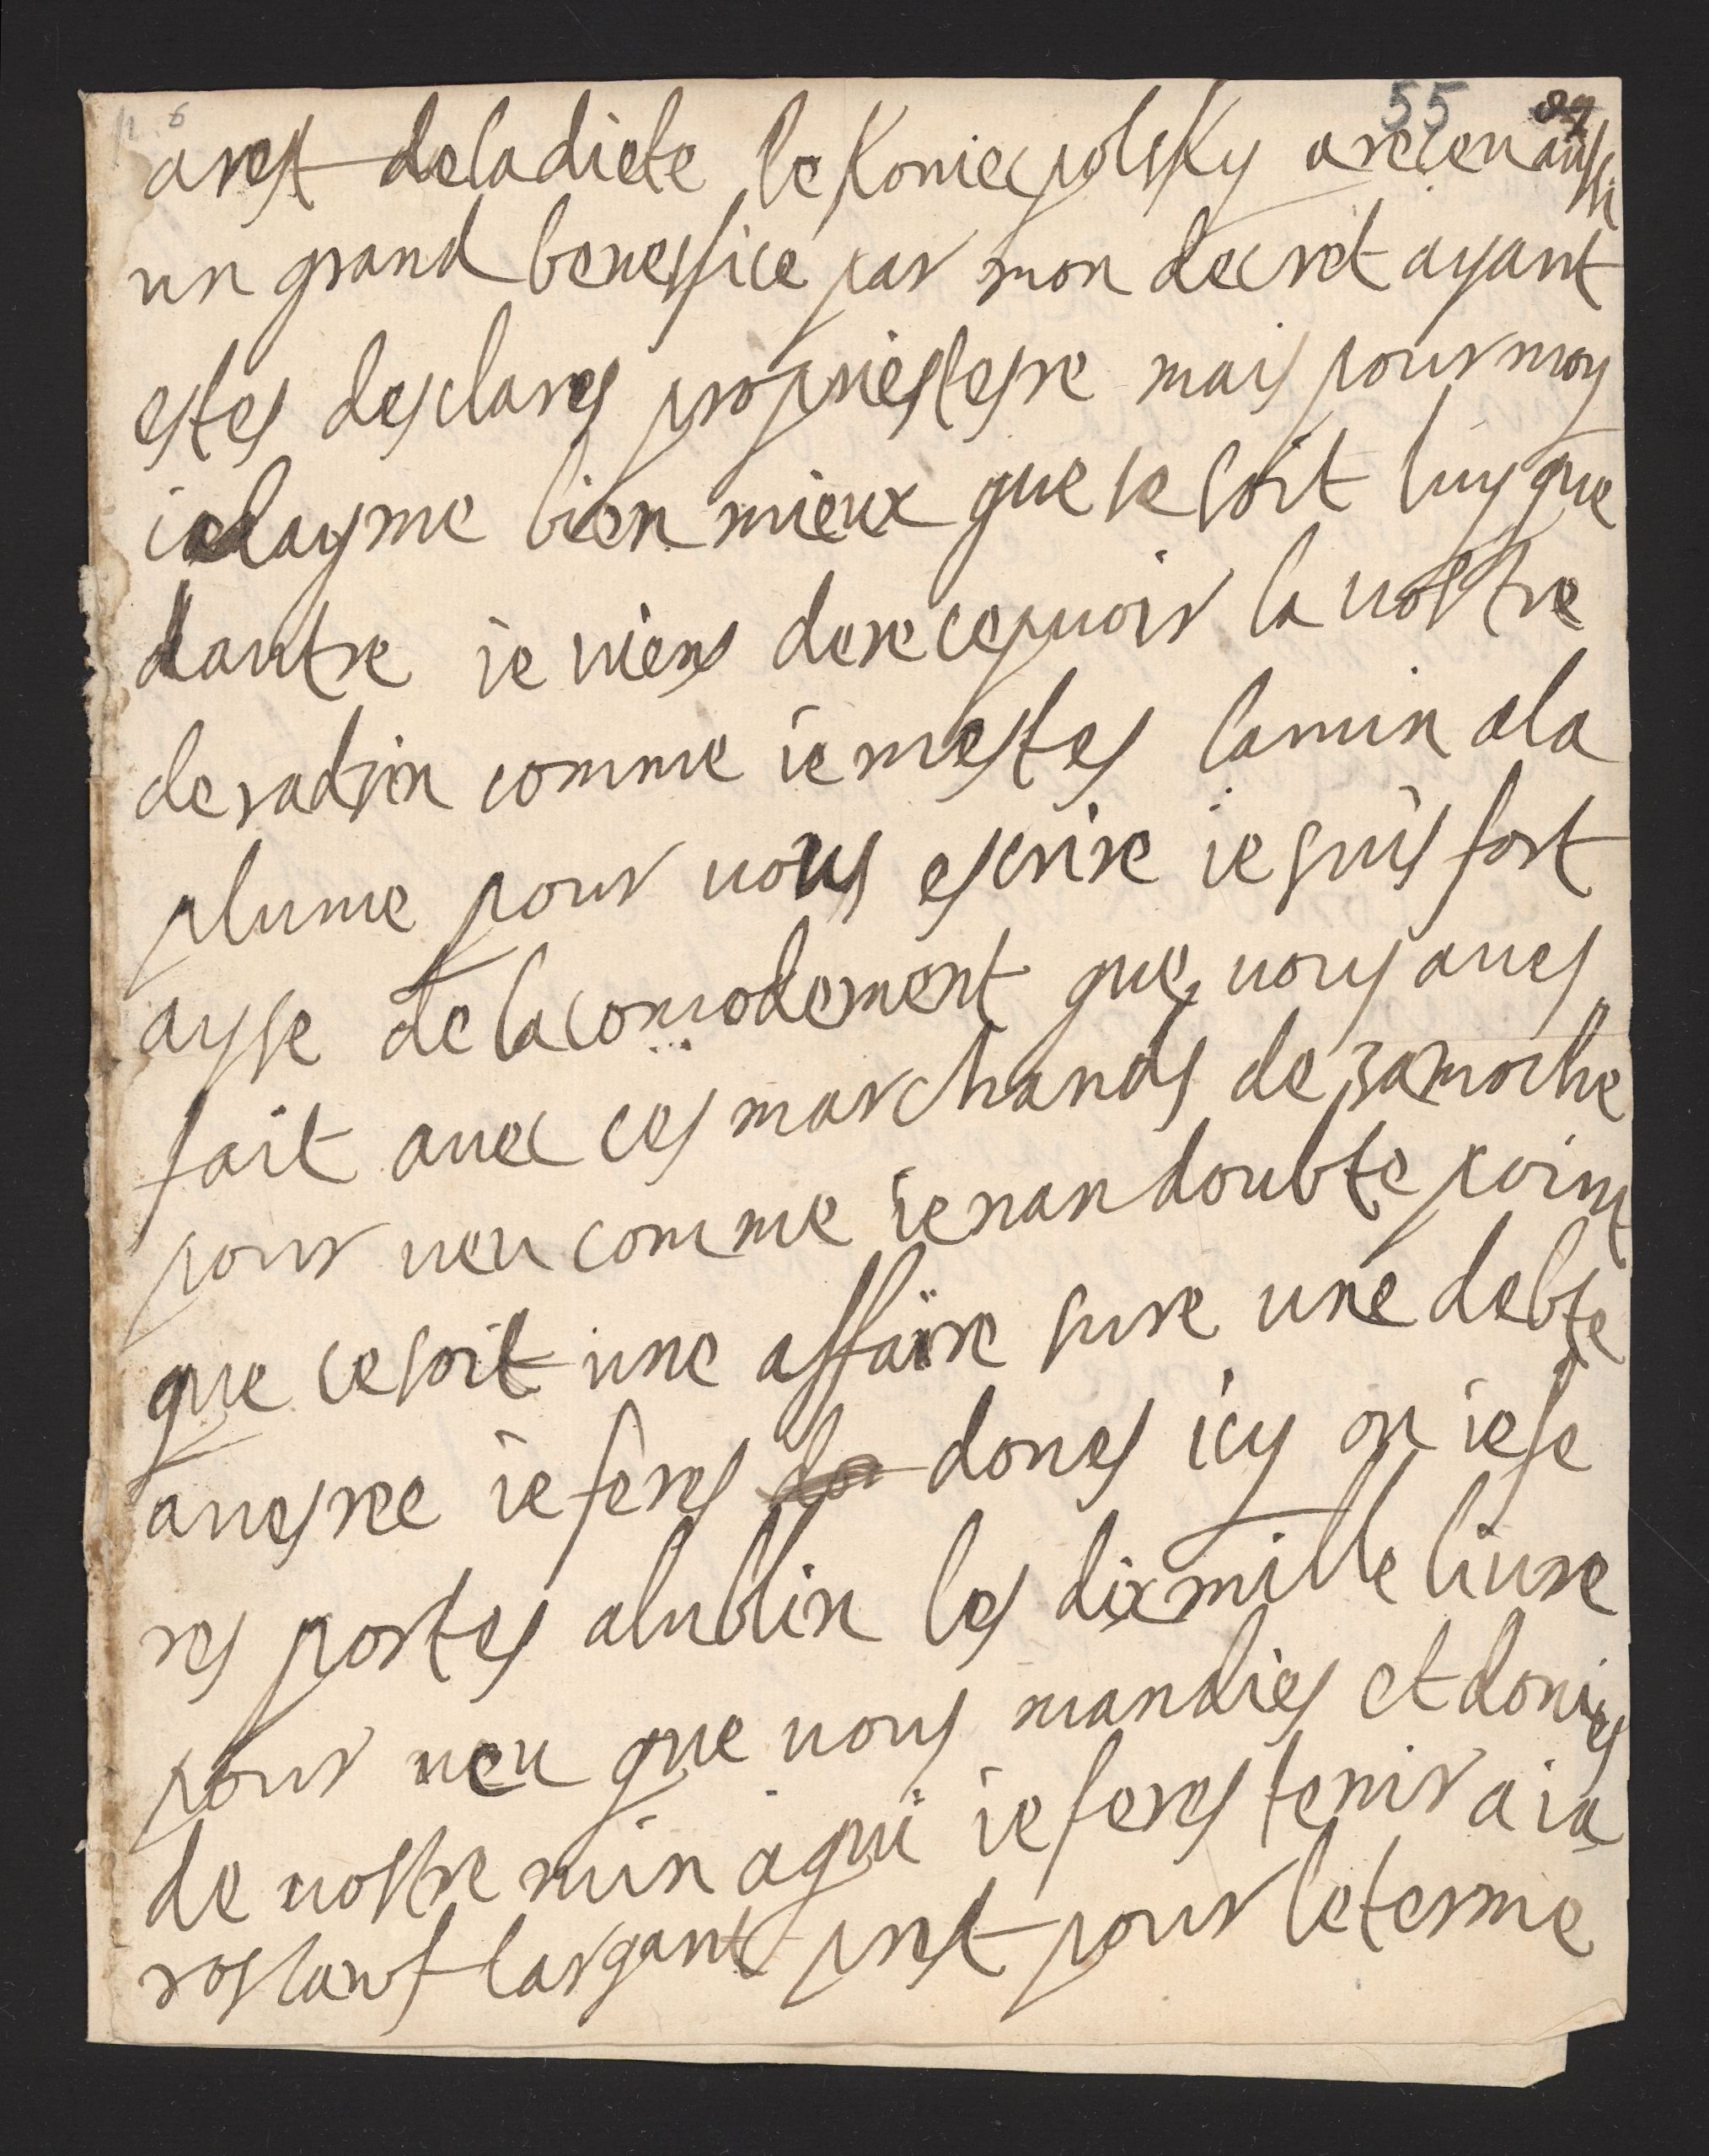 55 89
arest deladiete le Koniecpolsky areceu aussi
un grand beneffice par mon decret ayant
estes desclares propriestesre mais pour moy
ie layme bien mieux que se soit luy que
dautre ie viens derecepuoir la vostre
deradin comme ie mestes lamin ala
plume pour vous escrire ie suis fort
aysse de lacomodement que vous aues
fait auec ces marchands de zamoche
pour veu comme ienan doubte point
que cesoit une affaire sure une debte
auesree ie feres dones icy ou iefe
res portes alublin les dix mille liure
pour veu que vous mandies et donies
de vostre min aqui ie feres tenir a ia
roslauf largant prest pour leterme